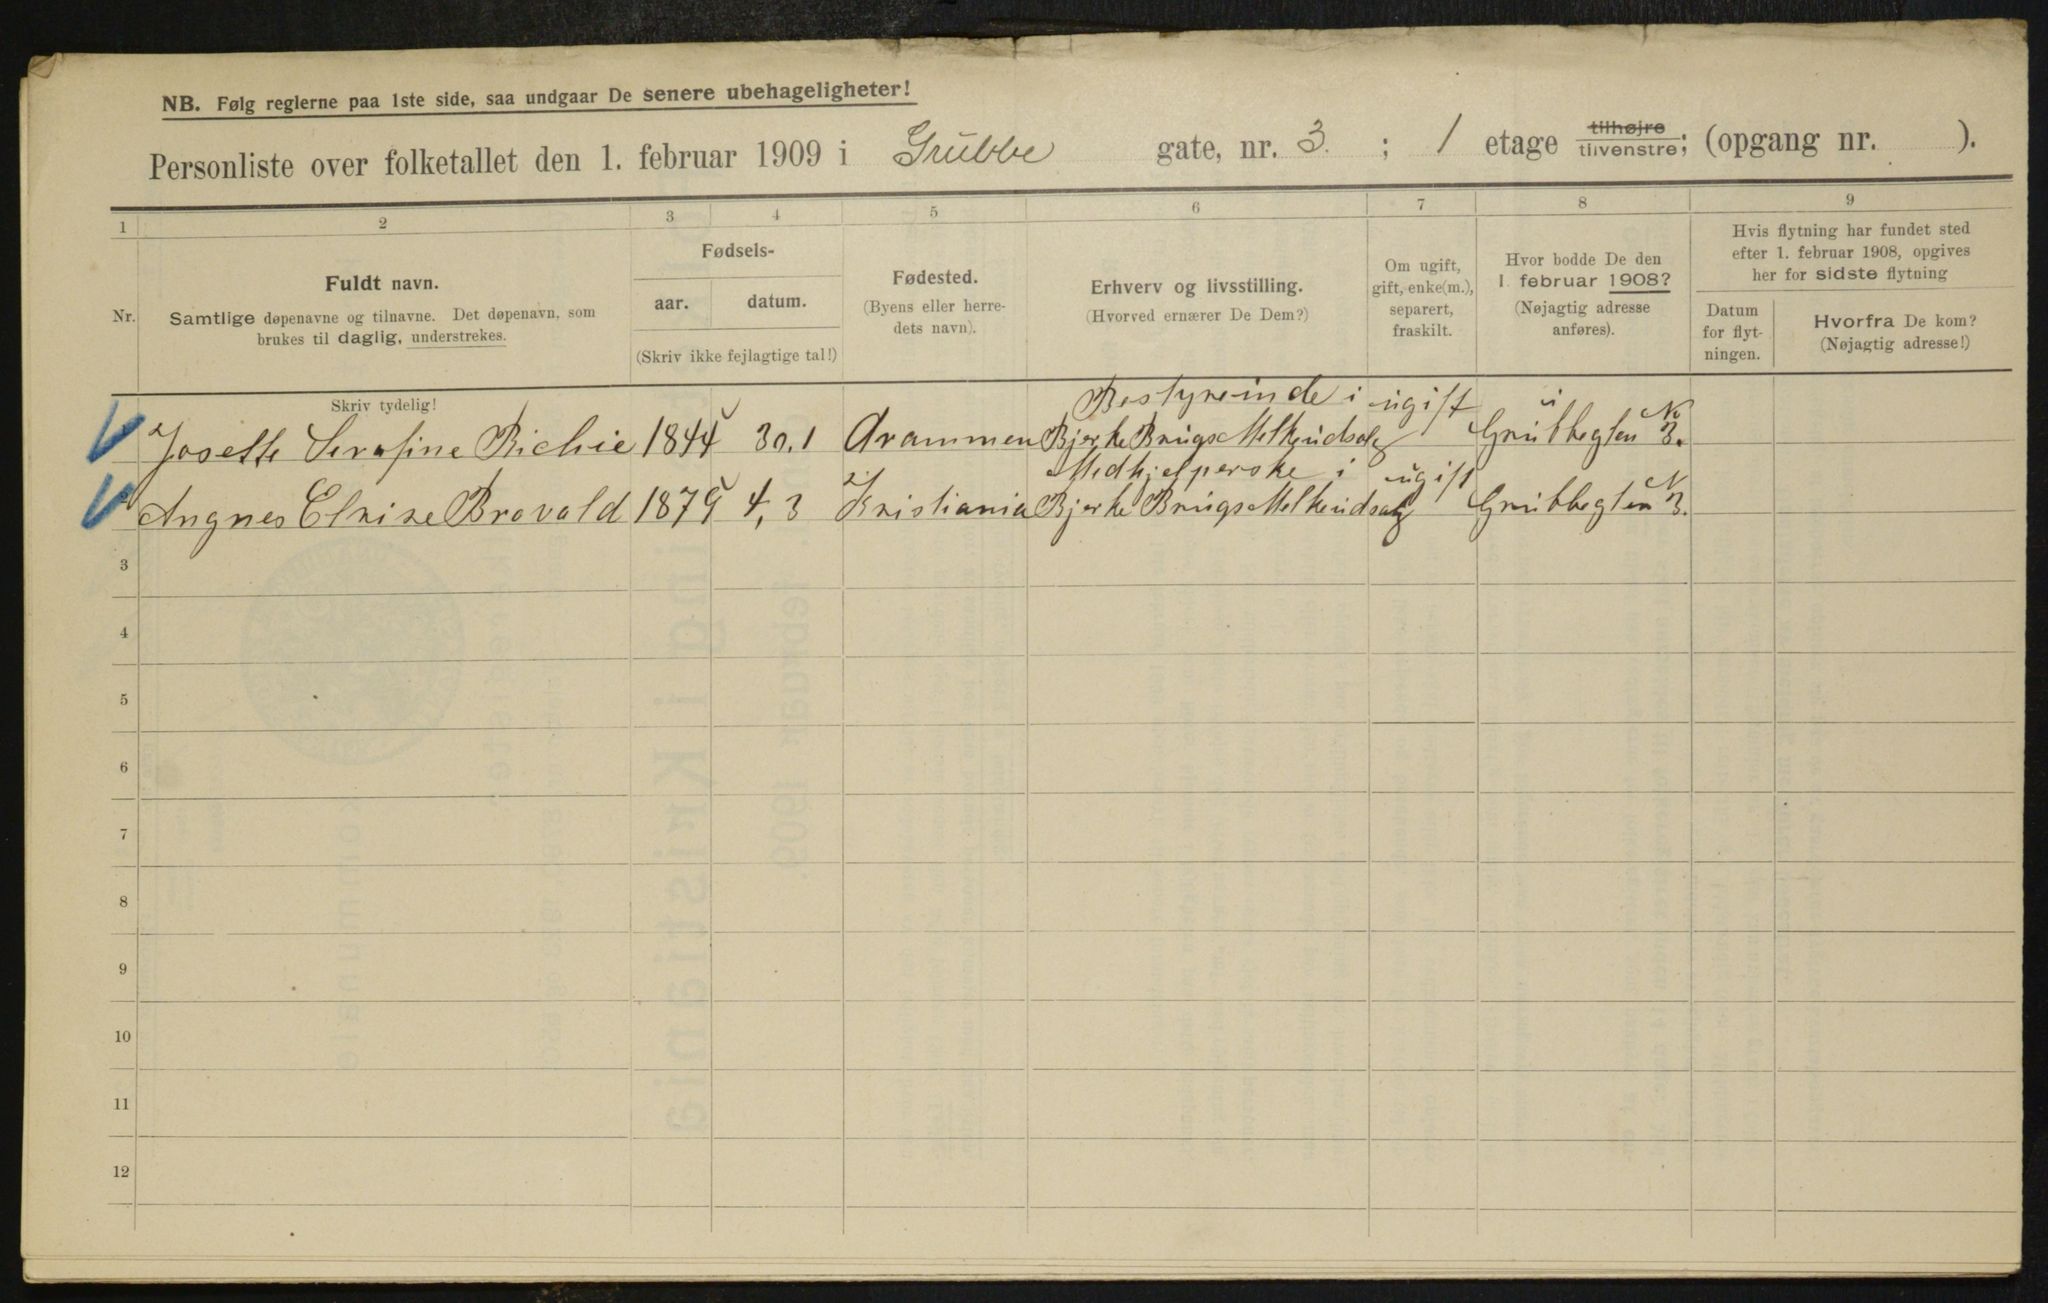 NB. Følg reglerne paa 1ste side, saa undgaar De senere ubehageligheter!
Personliste over folketallet den 1. februar 1909 i Grubbe gate, nr. 3. ; 1 etage tilhøjre tilvenstre; (opgang nr. ).
1 2 3 4 5 6 7 8 9
Nr.
Fuldt navn.
Samtlige døpenavne og tilnavne. Det døpenavn, som
brukes til daglig, understrekes.
Fødsels-
aar. datum.
(Skriv ikke fejlagtige tal!)
Fødested.
(Byens eller herre-
dets navn).
Erhverv og livsstilling.
(Hvorved ernærer De Dem?)
Om ugift,
gift, enke(m.),
separert,
fraskilt.
Hvor bodde De den
1. februar 1908?
(Nøjagtig adresse
anføres).
Hvis flytning har fundet sted
efter 1. februar 1908, opgives
her for sidste flytning
Datum
for flyt-
ningen.
Hvorfra De kom?
(Nøjagtig adresse!)
Skriv tydelig!
Bestyreinde i ugift
Josette Serafine Richie 1844 30.1 Drammen Bjerke Brugs Melkeudsalg Grubbegten No 3.
Medhjelperske i ugift
Angnes Elvire Brovold 1879 4,3 Kristiania Bjerke Brugs Melkeudsalg Grubbegten N 3.
3
4
5
6
7
8
9
10
11
12